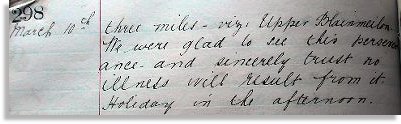 298
March 10th three miles - viz: Upper Blainmeilon -
We were glad to see this persever
ance - and sincerely trust no
illness will result from it.
Holiday in the afternoon.